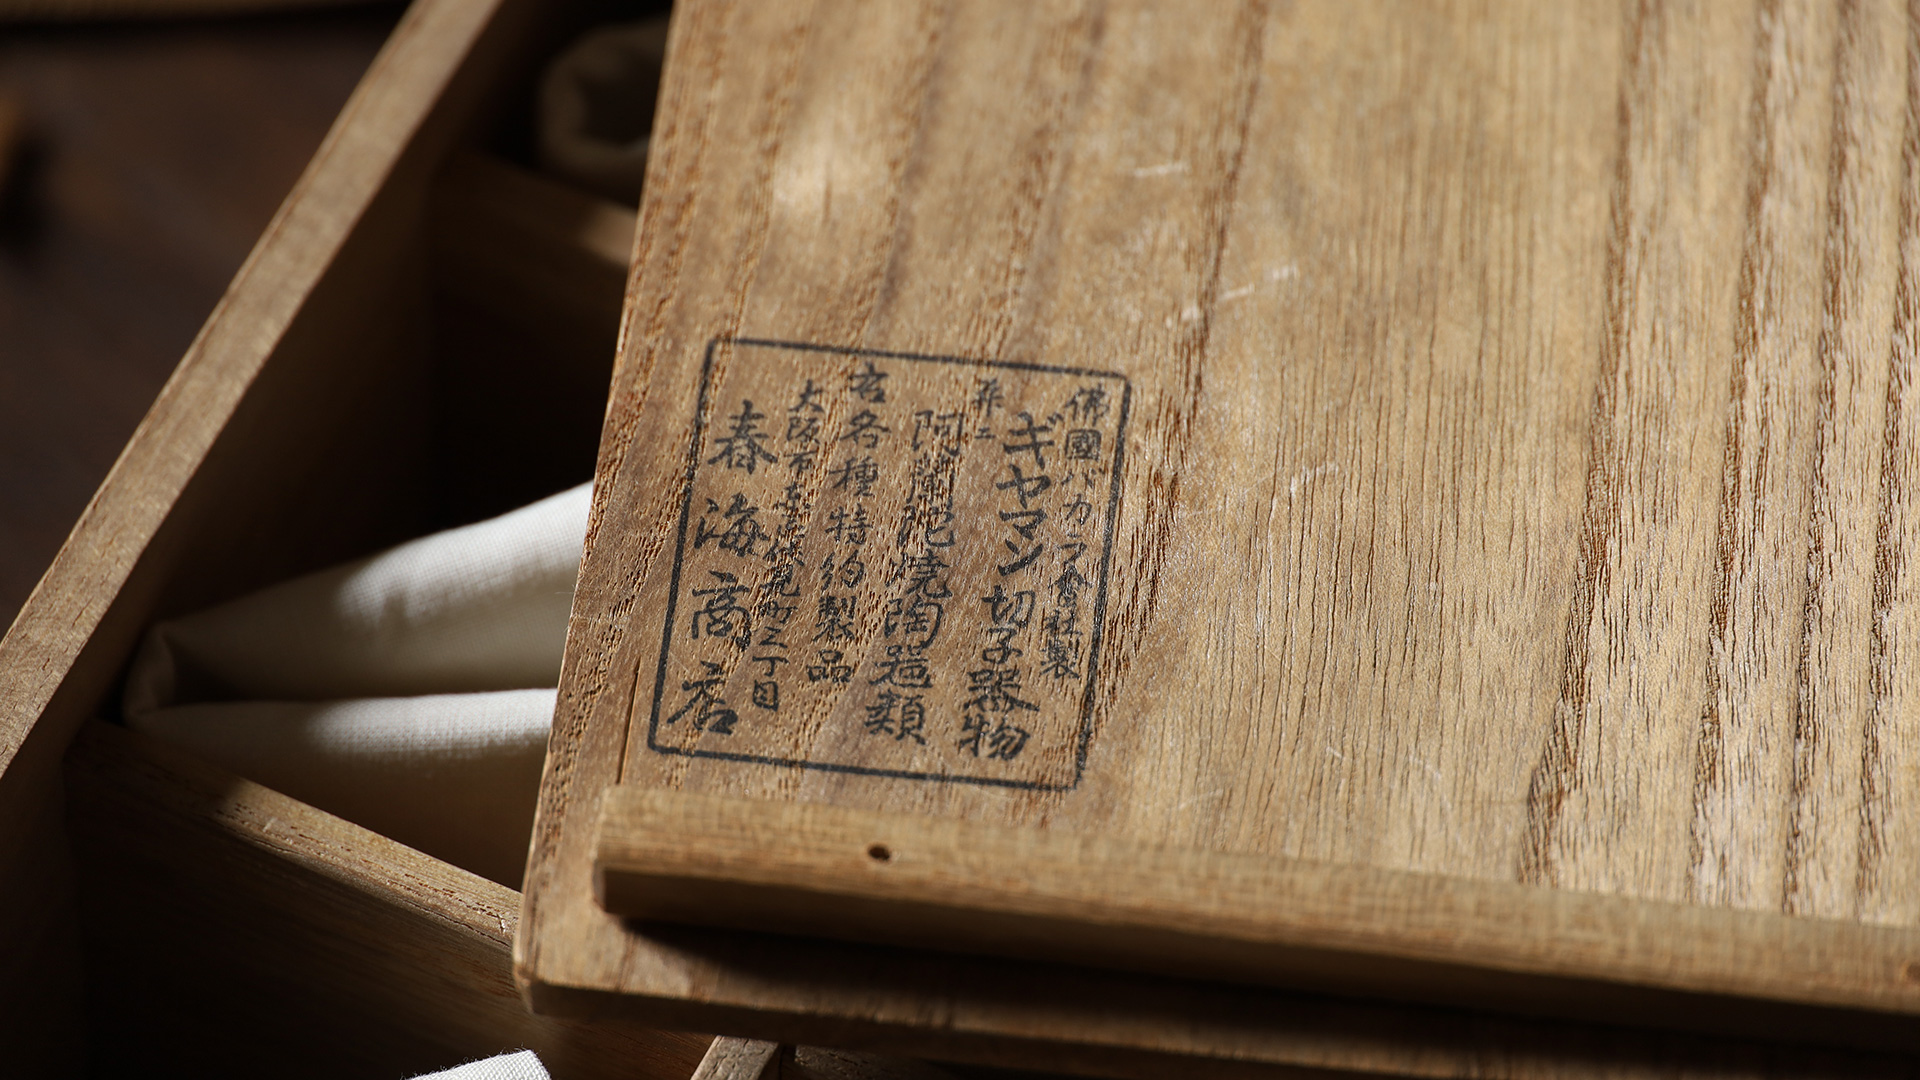 佛國バカラ會社製
ギヤマン切子器物
並ニ
阿蘭陀焼陶器類
右各種特約製品
大阪市東区伏見町三丁目
春海商店